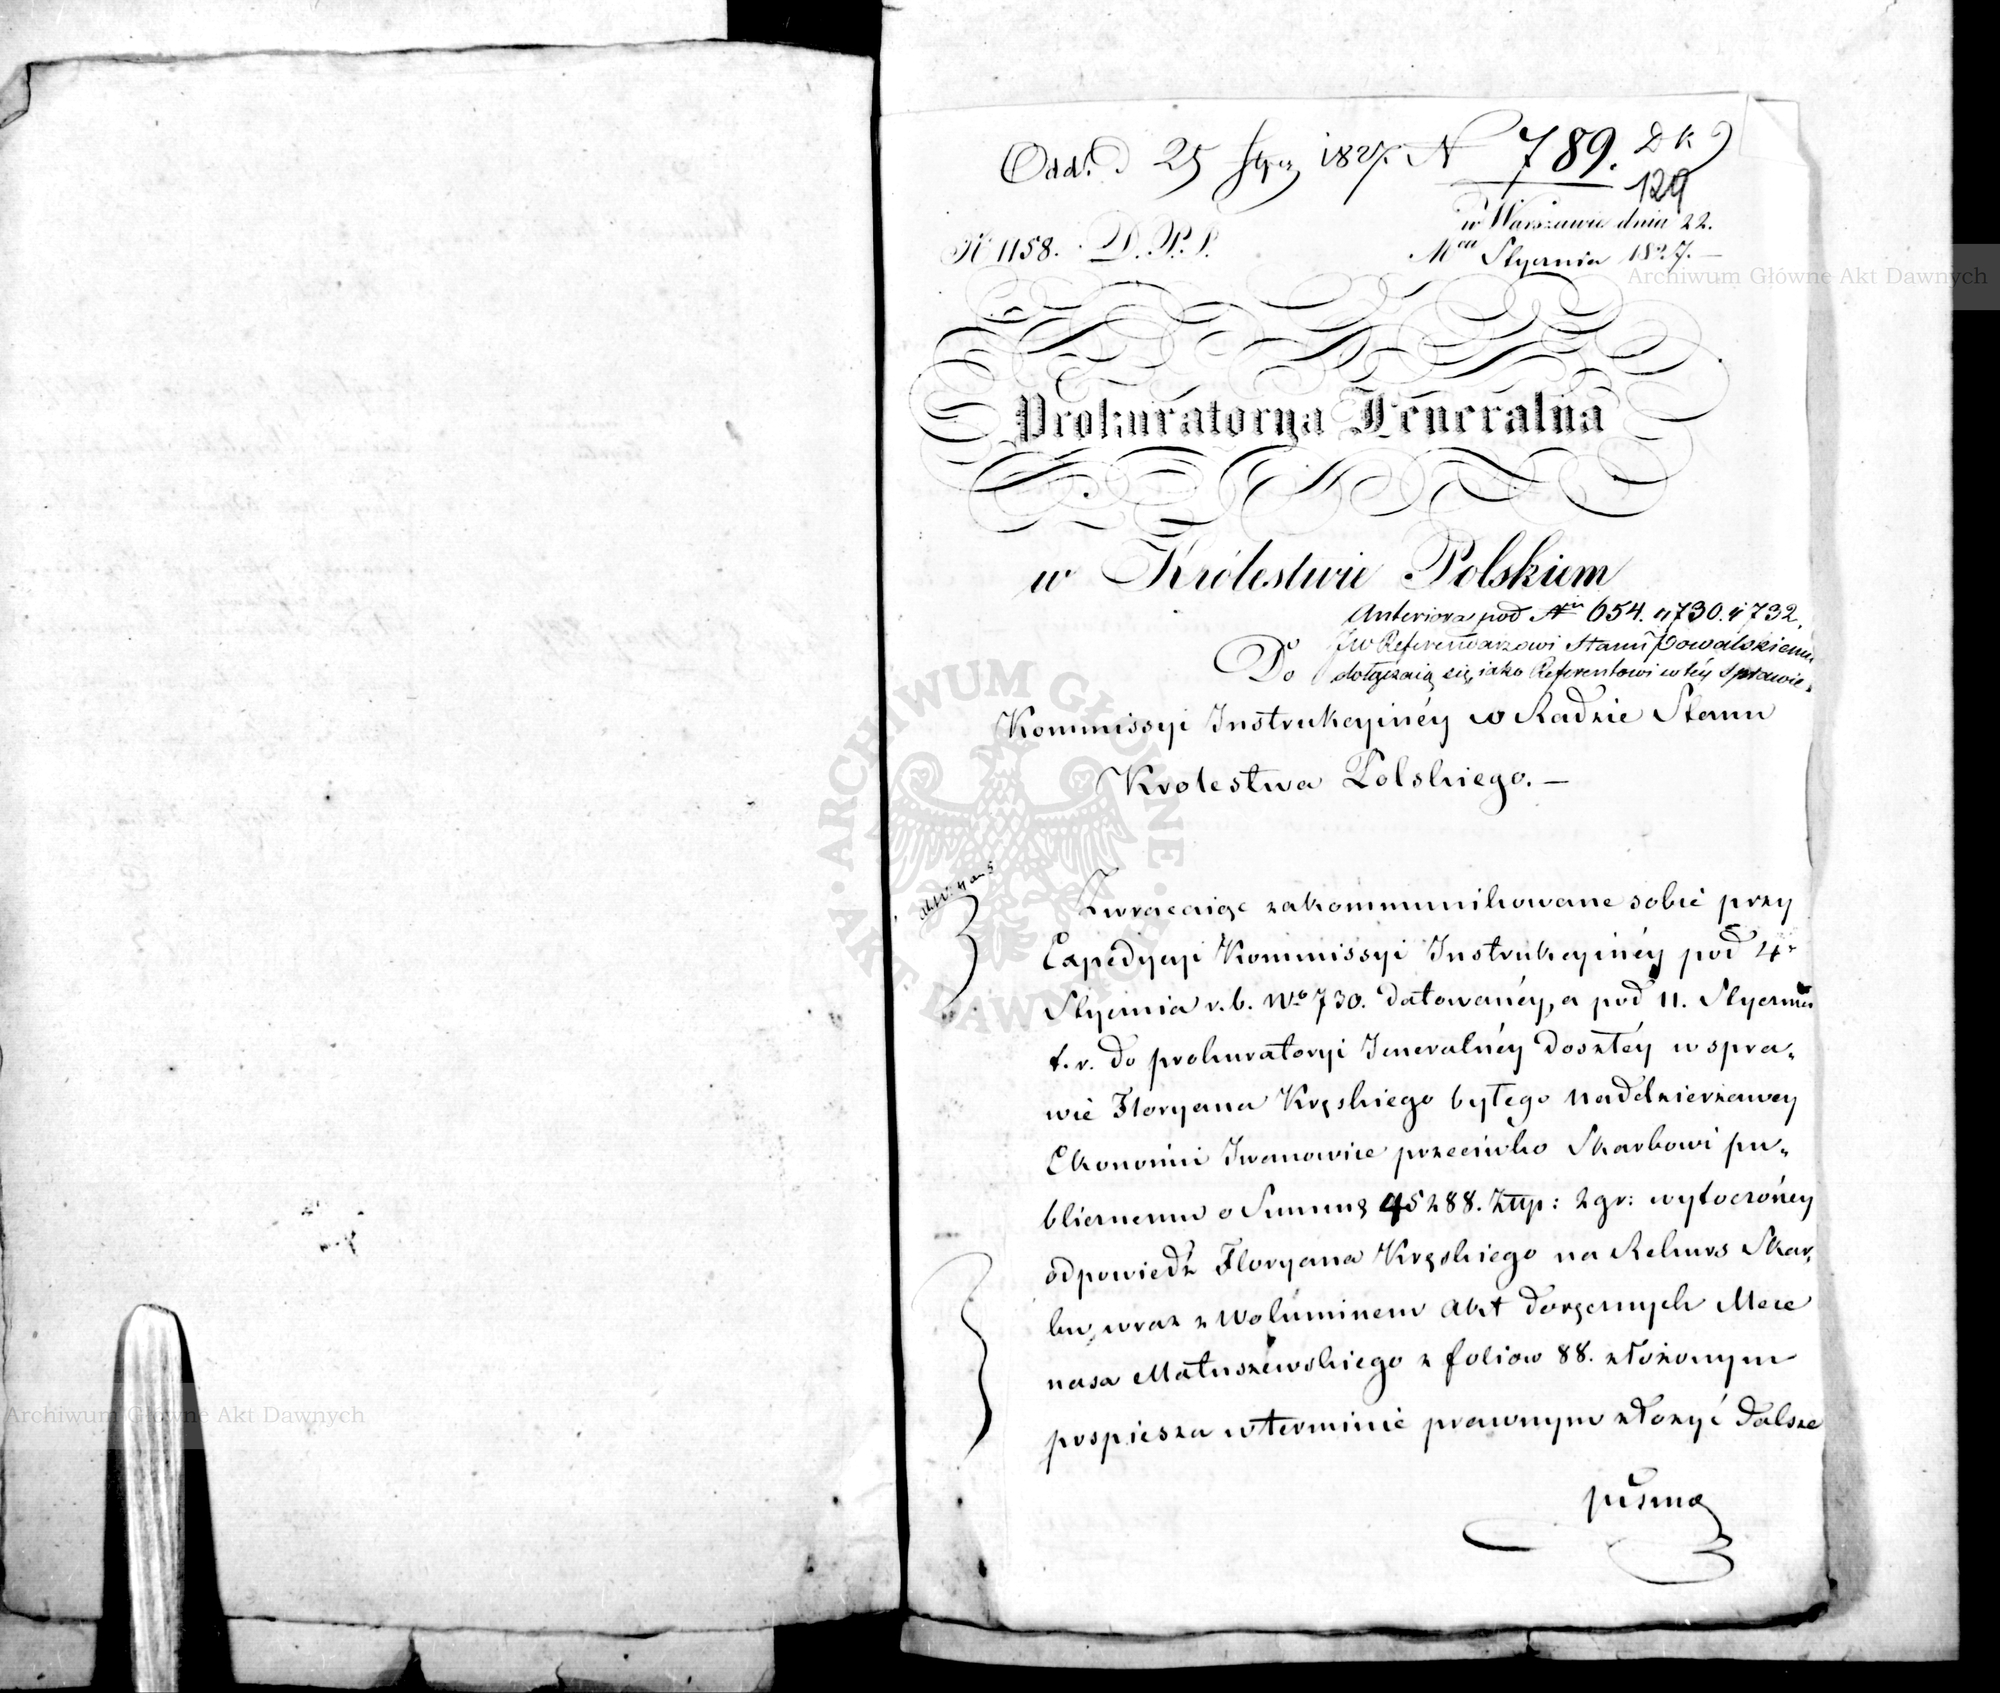 Odd. d 25 Stycz 1827. N 789. DK
129
N 1158. D.P.S.
w Warszawie dnia 22.
Mca Stycznia 1827. —
Archiwum Główne Akt Dawnych
Prokuratorya Jeneralna
w Królestwie Polskiem
Anteriora pod Nrii 654. 730. i 732.
JW Referendarzowi Stanu Kowalskiemu
dołączaią się, iako Referentowi w téy sprawie.
Do
Kommissyi Instrukcyinéy w Radzie Stanu
Krolestwa Polskiego. —
ARCHIWUM GŁÓWNE AKT DAWNYCH
Zwracaiąc zakommunikowane sobie przy
Expedycyi Kommissyi Instrukcyinéy pod 4.
Stycznia r. b. No 730. datowanéy, a pod 11. Stycznia
t. r. do prokuratoryi Jeneralnéy doszłéy w spra„
wie Floryana Kręskiego byłego Naddzierżawcy
Ekonomii Iwanowice przeciwko Skarbowi pu„
blicznemu o Summę 45288. Złłp: 2 gr: wytoczonéy
odpowiedź Floryana Kręskiego na Rekurs Skar„
bu, wraz z Woluminem Akt doręcznych Mece
nasa Matuszewskiego z foliow 88. złożonym
pospiesza w terminie prawnym złożyć dalsze
pisma
Archiwum Główne Akt Dawnych